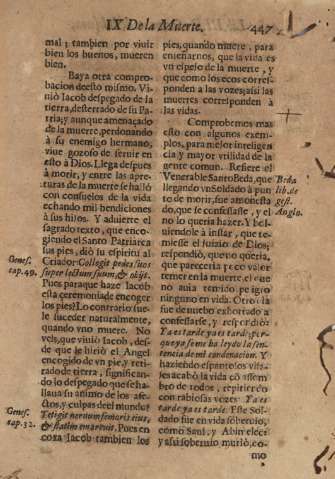 IX De la Muerte. 447
mal; tambien por viuir
bien los buenos, mueren
bien.
Baya otra comprobacion
deesto mismo. Viuiò
Iacob despegado de la
tierra, desterrado de su Patria;
y aunque amenaçado
de la muerte, perdonando
à su enemigo hermano,
viue gozoso de seruir en
esto à Dios. Llega despues
à morir, y entre las apreturas
de la muerte se hallò
con consuelos de la vida
echando mil bendiciones
à sus hijos. Y aduierte el
sagrado texto, que encogiendo
el Santo Patriarca
sus pies, diò su espiritu al
Criador: Collegit pedes suos
super lectum suum, & obijt.
Genes. cap. 49.
Pues paraque haze Iacob
esta ceremonia de encoger
los pies? Lo contrario suele
suceder naturalmente,
quando vno muere. No
veis, que viuiò Iacob, desde
que le hiriò el Angel
encogido de vn pie, y retirado
de tierra, significando
lo despegado que se hallaua
su animo de los afectos,
y culpas deel mundo?
Tetigit neruum femoris eius,
& statim emarcuit. Pues en
Genes. cap. 32.
coxa Iacob tambien los
pies, quando muere, para
enseñarnos, que la vida es
vn espejo de la muerte, y
que como los ecos corresponden
à las vozes; assi las
muertes corresponden à
las vidas.
Comprobemos mas
esto con algunos exemplos,
para mejor inteligencia
y mayor vtilidad de la
gente comun. Refiere el
Venerable Santo Beda, que
Beda lib. de gest. Anglo.
llegando vn Soldado à punto
de morir, fue amonestado,
que se confessasse, y el
no lo queria hazer. Y boluiendole
à instar, que temiesse
el juizio de Dios;
respondiò, que no queria,
que pareceria poco valor
temer en la muerte, el que
no auia temido peligro
ninguno en vida. Otro dia
fue de nueuo exhortado à
confessarse, y respondiò:
Ya es tarde ya es tarde; porque
yo se me ha leydo la sentencia
de mi condenacion. Y
haziendo espantosos visages
acabò la vida cõ assombro
de todos, repitiendo
con rabiosas vozes Ya es
tarde ya es tarde. Este Soldado
fue en vida soberuio,
como Saul, y Abimelec,
y assi soberuio muriò, como